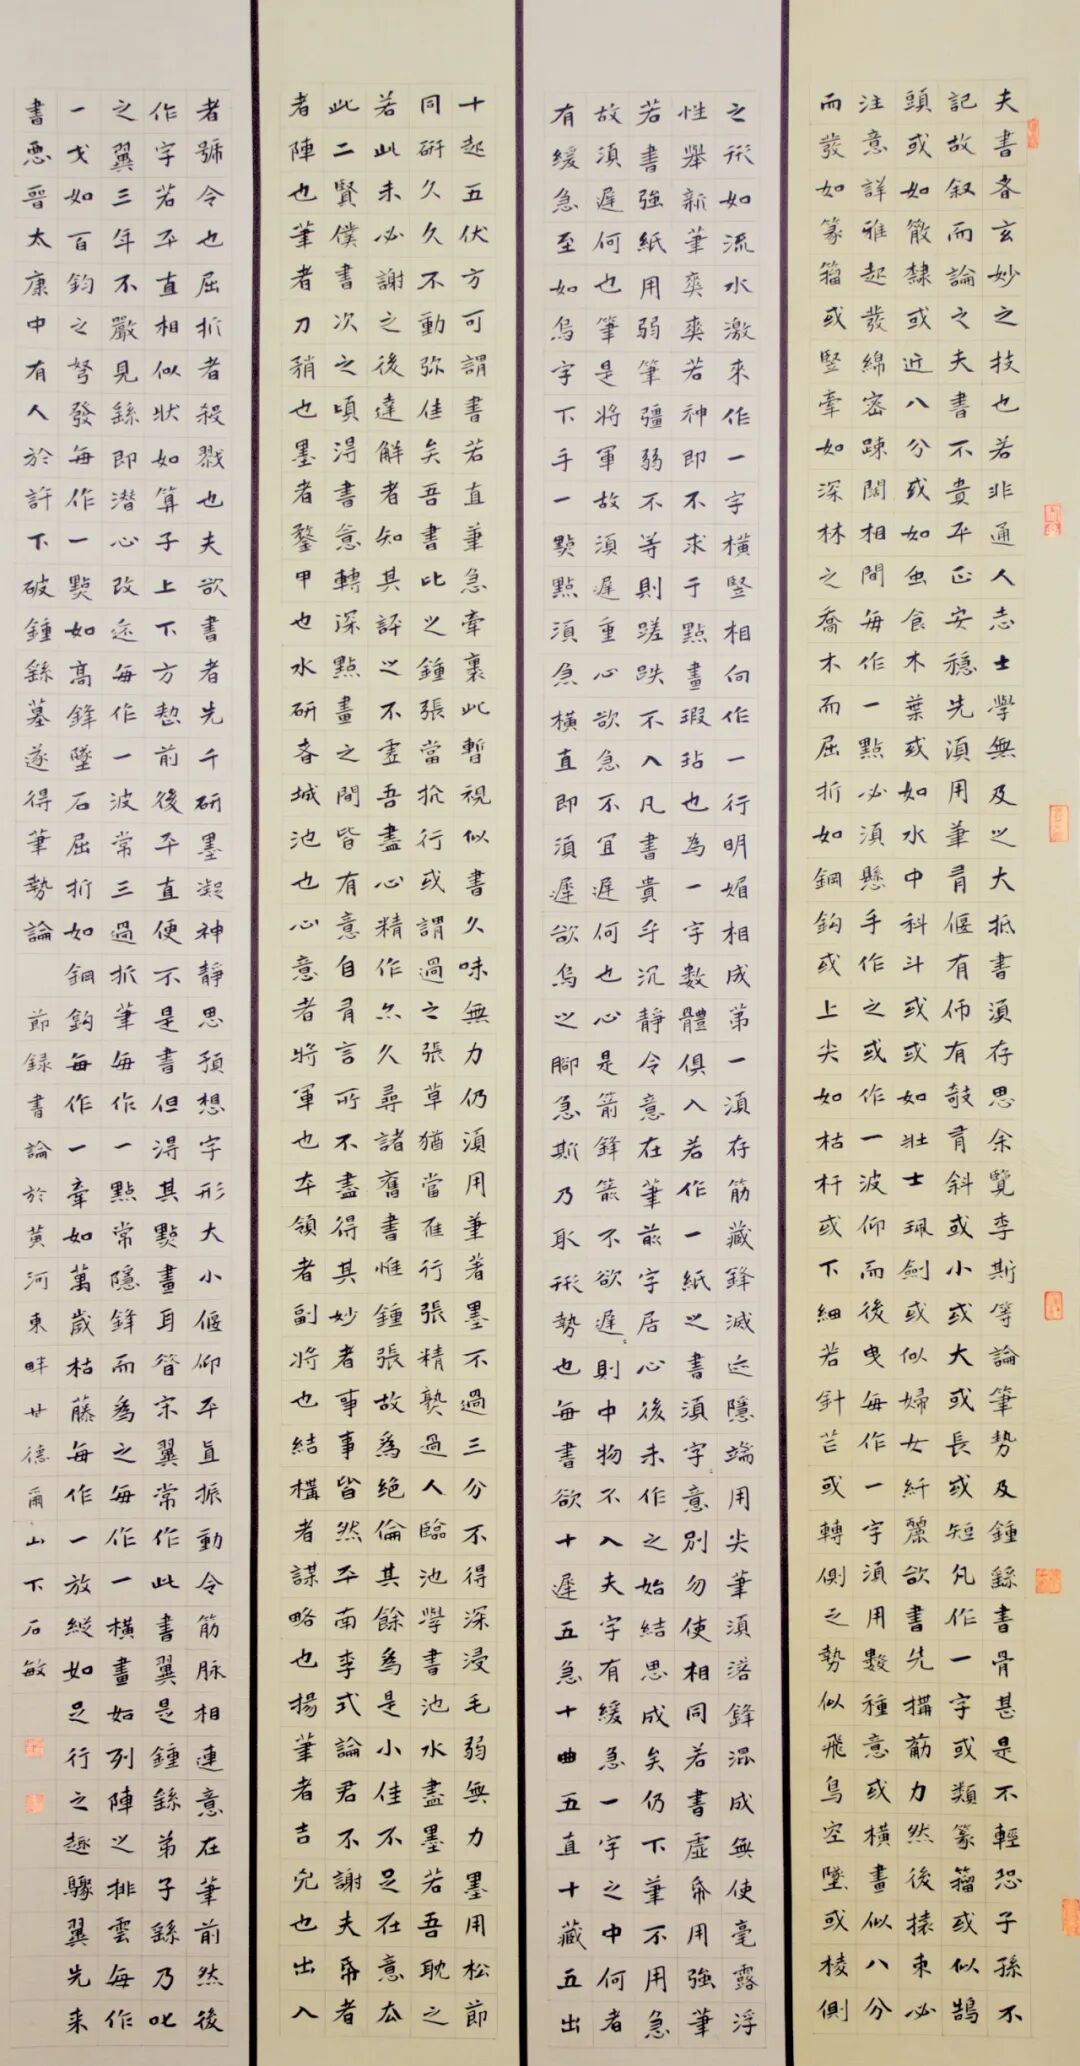 夫書者玄妙之技也若非通人志士學無及之大抵書須存思余覽李斯等論筆勢及鍾繇書骨甚是不輕恐子孫不
記故叙而論之夫書不貴平正安穩先須用筆有偃有仰有攲有斜或小或大或長或短凡作一字或類篆籀或似鵠
頭或如散隸或近八分或如虫食木葉或如水中科斗或或如壯士珮劍或似婦女纤麗欲書先搆筋力然後裝束必
注意詳雅起發綿密疎闊相間每作一點必須懸手作之或作一波仰而後曳每作一字須用數種意或橫畫似八分
而發如篆籀或竪牽如深林之喬木而屈折如鋼鈎或上尖如枯杆或下細若針芒或轉側之勢似飛鳥空墜或棱側
之形如流水激來作一字橫竪相向作一行明媚相成第一須存筋藏鋒滅迹隱端用尖筆須落鋒混成無使毫露浮
性舉新筆爽爽若神即不求于點畫瑕玷也為一字數體俱入若作一紙之書須字意別勿使相同若書虛帋用強筆
若書強紙用弱筆彊弱不等則蹉跌不入凡書貴乎沉靜令意在筆前字居心後未作之始結思成矣仍下筆不用急
故須遲何也筆是將軍故須遲重心欲急不宜遲何也心是箭鋒箭不欲遲則中物不入夫字有緩急一字之中何者
有緩急至如烏字下手一點點須急橫直即須遲欲烏之腳急斯乃取形勢也每書欲十遲五急十曲五直十藏五出
十起五伏方可謂書若直筆急牽裹此暫視似書久味無力仍須用筆著墨不過三分不得深浸毛弱無力墨用松節
同研久久不動弥佳矣吾書比之鍾張當抗行或謂過之張草猶當雁行張精熟過人臨池學書池水盡墨若吾耽之
若此未必謝之後達解者知其評之不虛吾盡心精作亦久尋諸舊書惟鍾張故為絕倫其餘為是小佳不足在意去
此二賢僕書次之頃得書意轉深點畫之間皆有意自有言所不盡得其妙者事事皆然平南李式論君不謝夫帋者
者陣也筆者刀矟也墨者鍪甲也水研者城池也心意者將軍也本領者副將也結構者謀略也揚筆者吉凶也出入
者號令也屈折者殺戮也夫欲書者先干研墨凝神靜思預想字形大小偃仰平直振動令筋脉相連意在筆前然後
作字若平直相似狀如算子上下方整前後平直便不是書但得其點畫耳昔宋翼常作此書翼是鍾繇弟子繇乃叱
之翼三年不嚴見繇即潛心改迹每作一波常三過折筆每作一點常隱鋒而為之每作一橫畫如列陣之排雲每作
一戈如百鈞之弩發每作一點如高鋒墜石屈折如鋼鈎每作一牽如萬歲枯藤每作一放縱如足行之趣驟翼先来
書惡晉太康中有人於許下破鍾繇墓遂得筆勢論 節録書論於黃河東畔廿德爾山下石敏